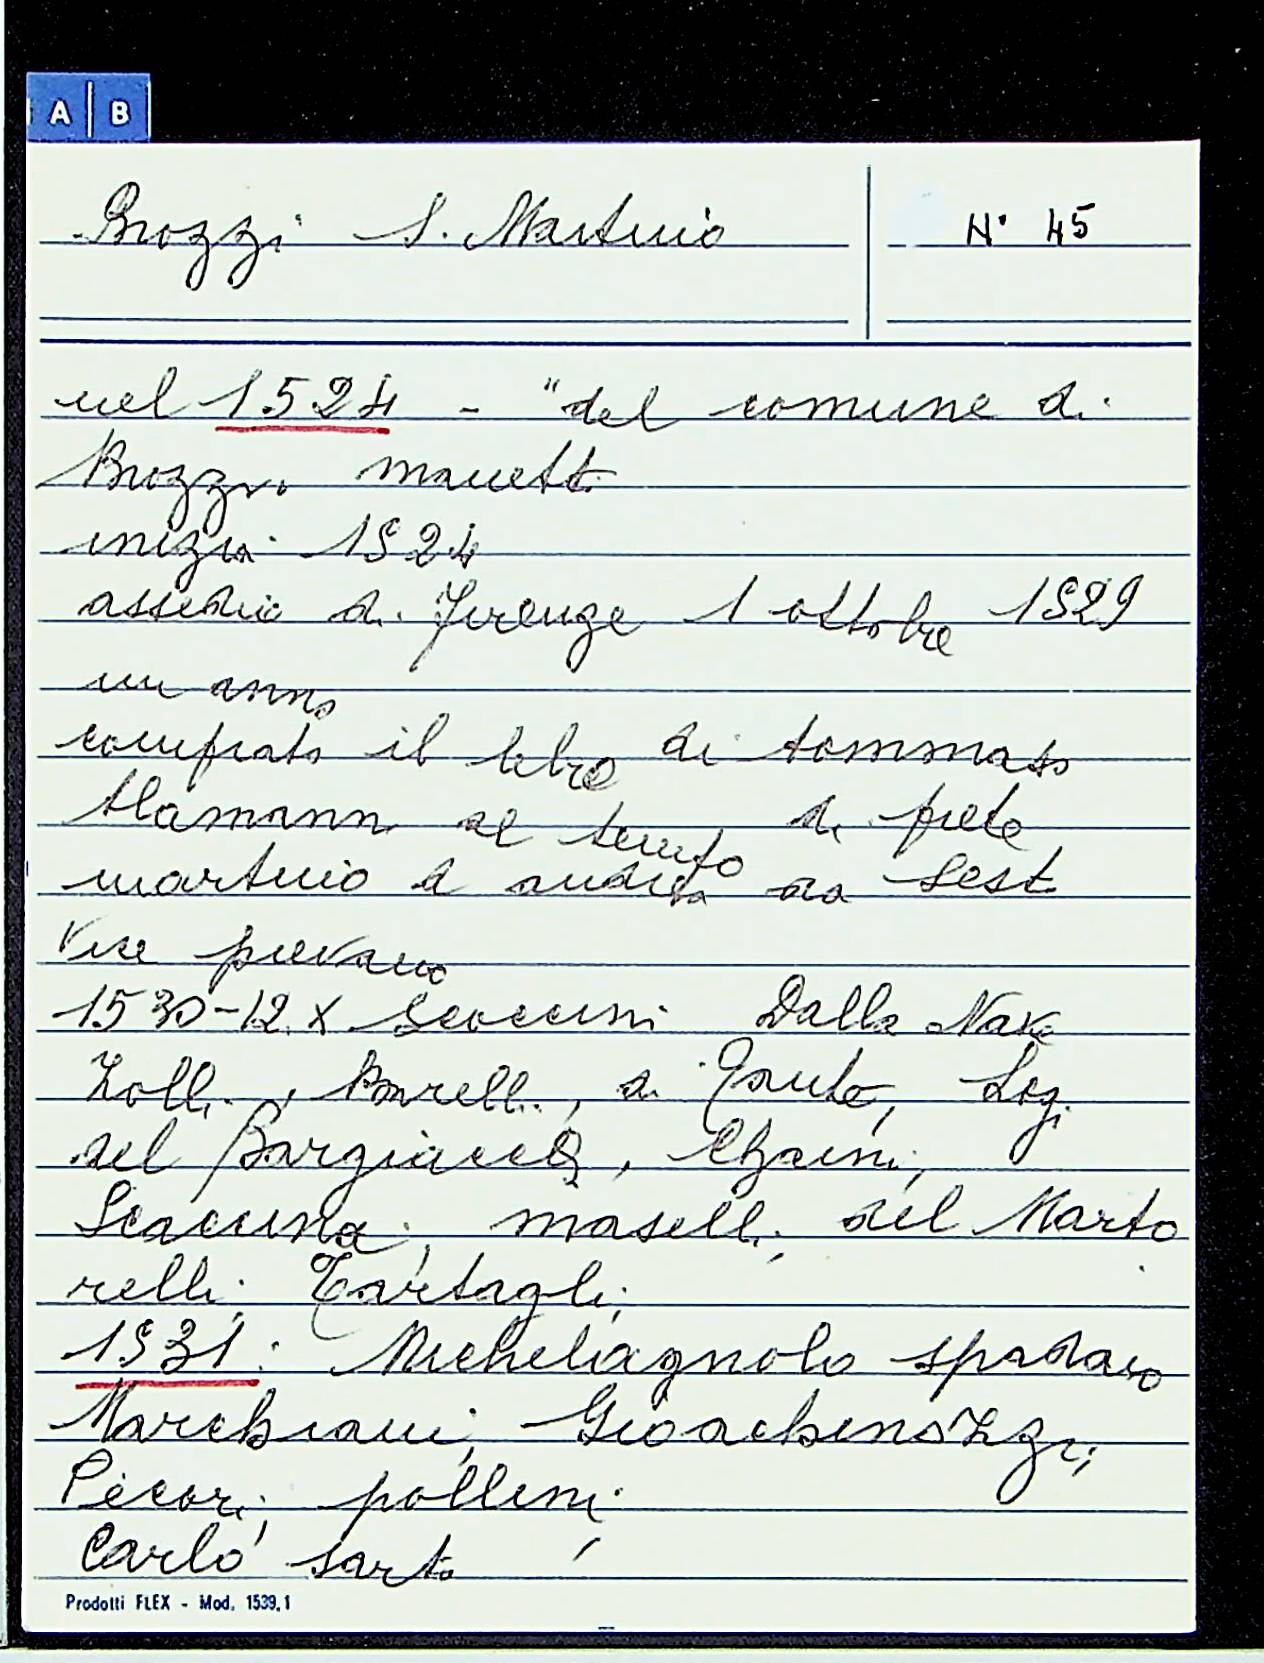 A B
Brozzi S. Martino
N° 45
nel 1524 - "del comune di
Brozzi. manetti
inizia 1524
assedio di Firenze 1 ottobre 1529
un anno
comprato il lebro di tommaso
Alamanni al tempo di prete
martino d andrea da Sesto
vice pievano
1530-12 X Dalla Nave
Zolli, Borelli, di
del Bargiacchi, Chaini,
Scaccina, maselli, del Marto
relli, Tartagli,
1531: Michelagnolo spadaio
Marchiani, Gioachino
Pecori, pollini
Carlo sarto
Prodotti FLEX - Mod. 1539,1